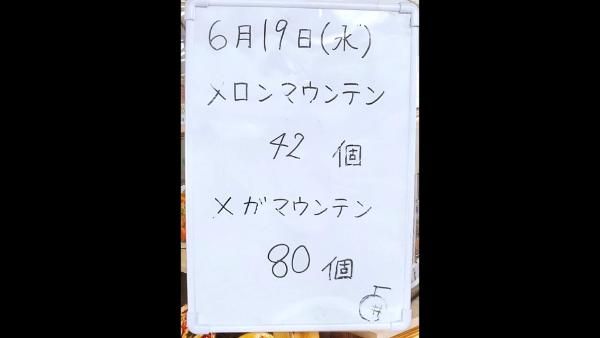 6月19日(水)
メロンマウンテン
42 個
メガマウンテン
80 個